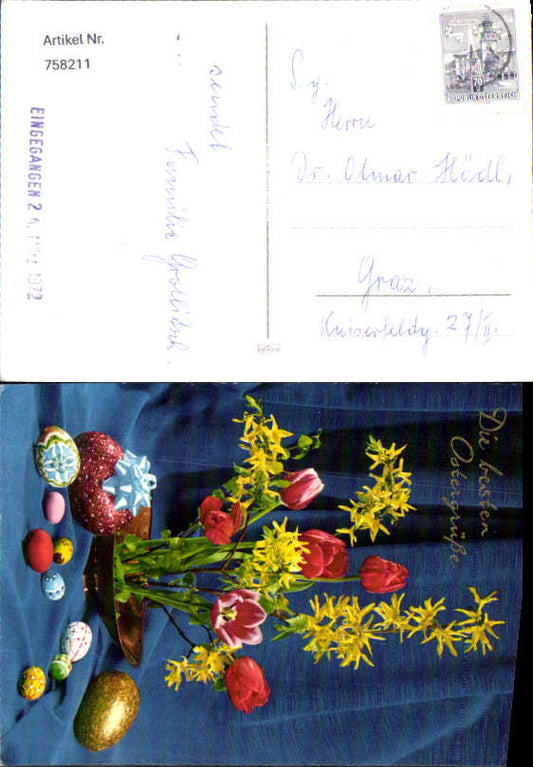 Artikel Nr.
758211
EINGEGANGEN 2 4. März 1972
sendet
Familie
S. g.
Herrn
Dr. Otmar Hödl,
Graz,
Kaiserfeldg. 27/II.
70
REPUBLIK ÖSTERREICH
Die besten
Ostergrüße